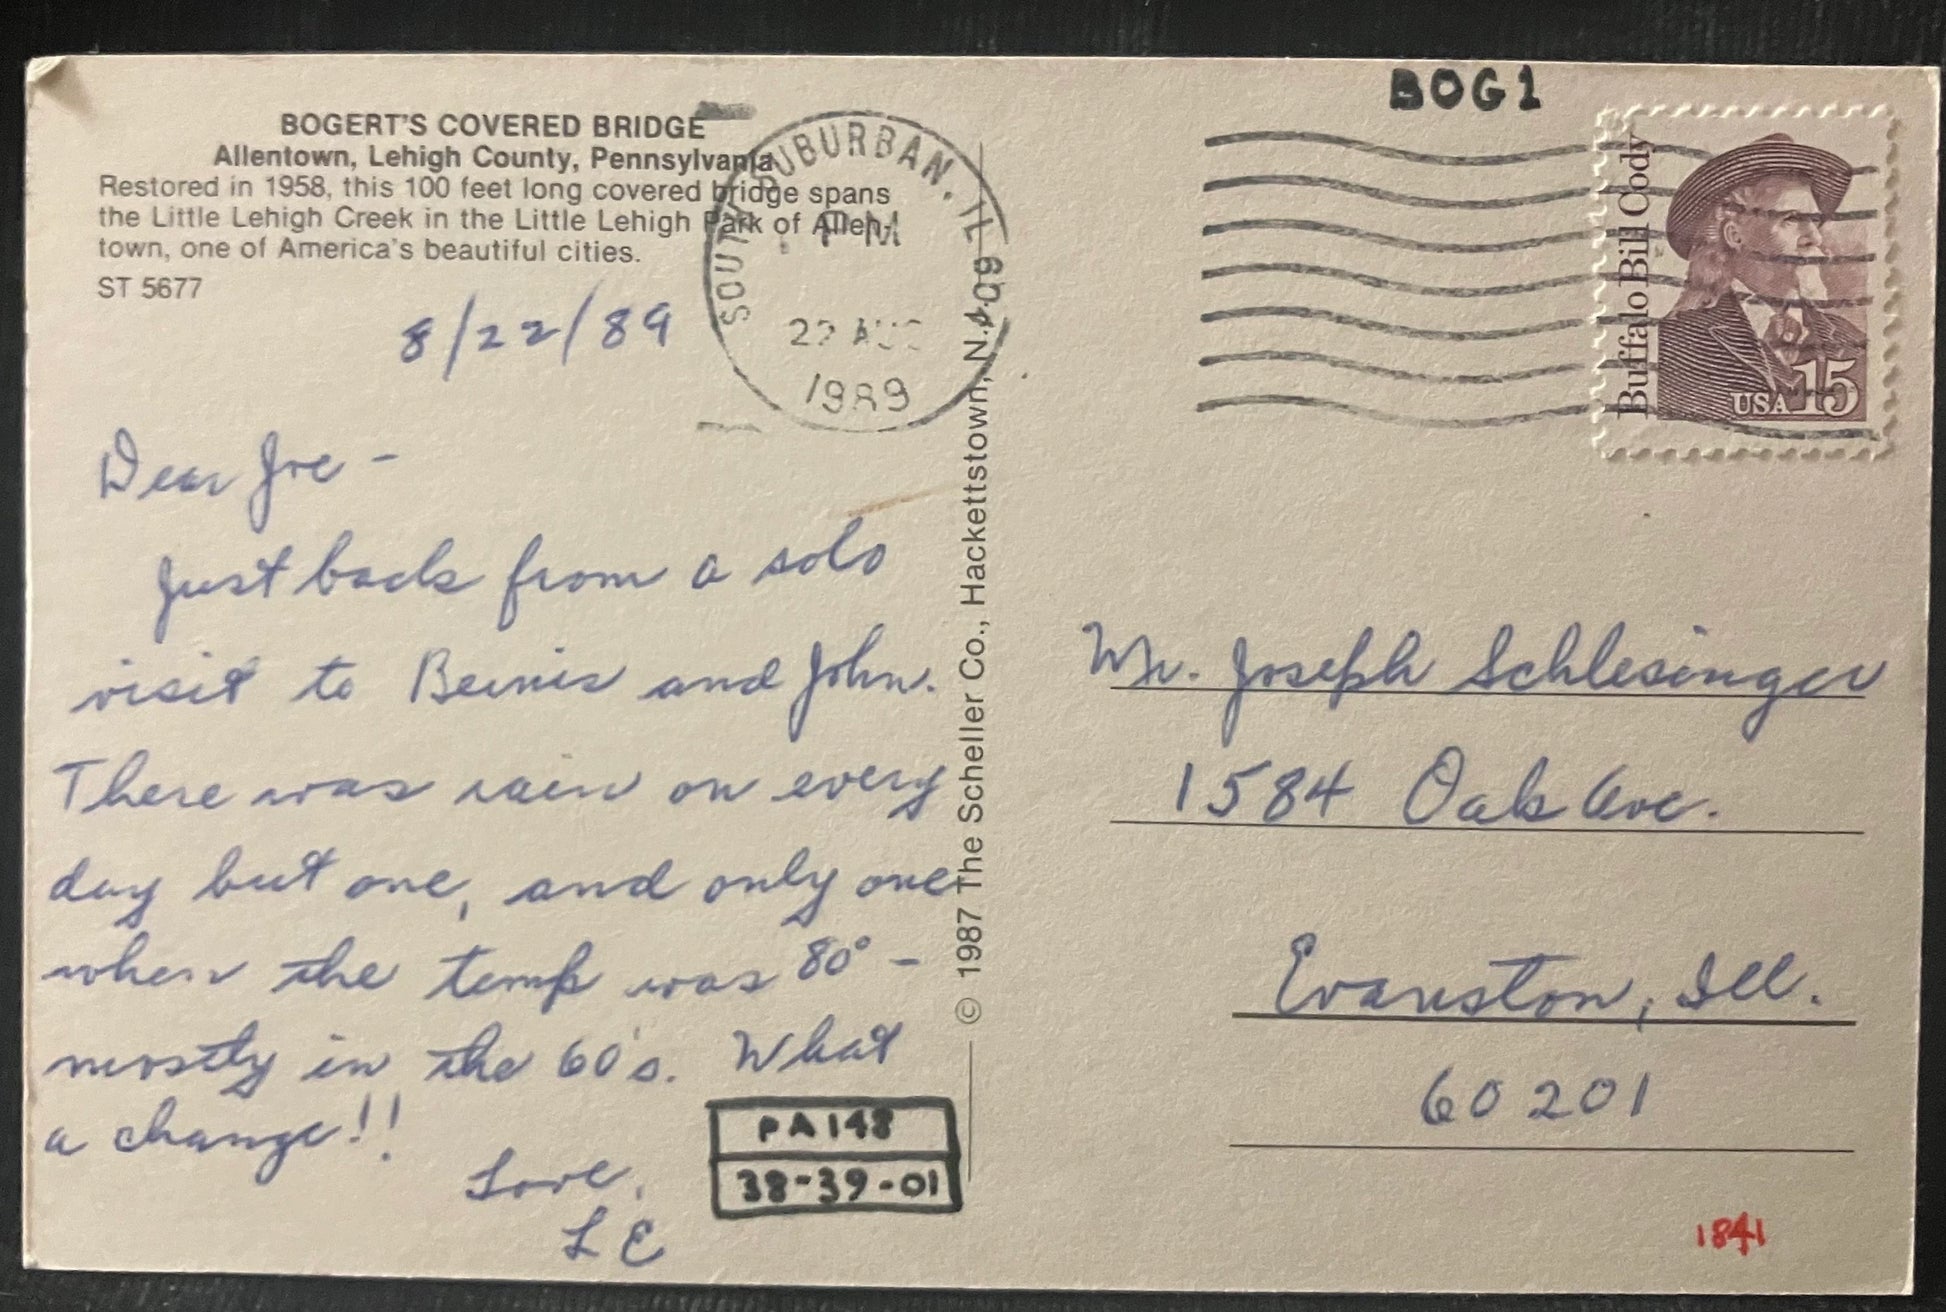 BOGERT'S COVERED BRIDGE
Allentown, Lehigh County, Pennsylvania
Restored in 1958, this 100 feet long covered bridge spans
the Little Lehigh Creek in the Little Lehigh Park of Allen-
town, one of America's beautiful cities.
ST 5677
8/22/89
Dear Joe -
Just back from a solo
visit to and John.
There was rain on every
day but one, and only one
when the temp was 80° -
mostly in the 60's. What
a change!!
Love,
L E
PA148
38-39-01
SOUTH SUBURBAN, IL 604
PM
22 AUG
1989
© 1987 The Scheller Co., Hackettstown, N.J.
BOG1
Buffalo Bill Cody
USA 15
Mr. Joseph Schlesinger
1584 Oak Ave.
Evanston, Ill.
60201
1841